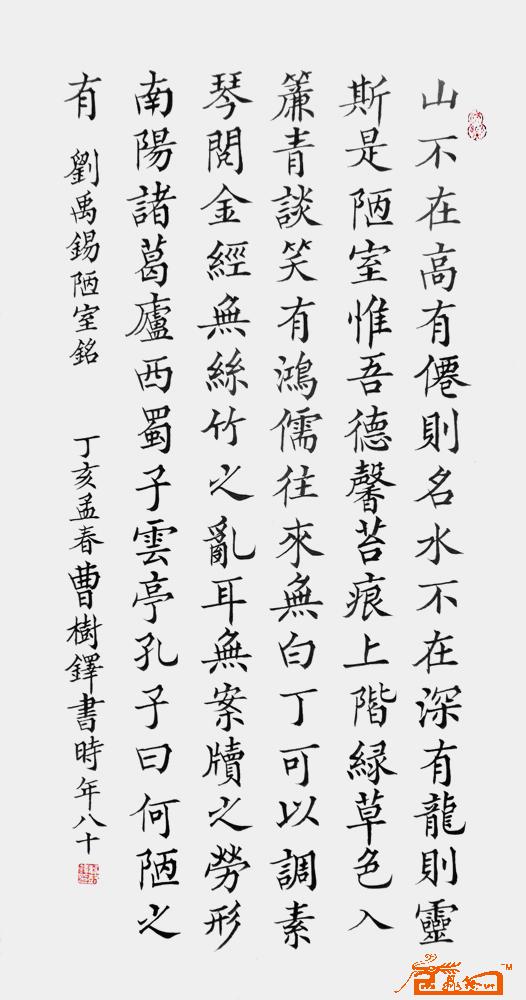 山不在高有僊則名水不在深有龍則靈
斯是陋室惟吾德馨苔痕上階緑草色入
簾青談笑有鴻儒往來無白丁可以調素
琴閱金經無絲竹之亂耳無案牘之勞形
南陽諸葛廬西蜀子雲亭孔子曰何陋之
有 劉禹錫陋室銘 丁亥孟春曹樹鐸書時年八十